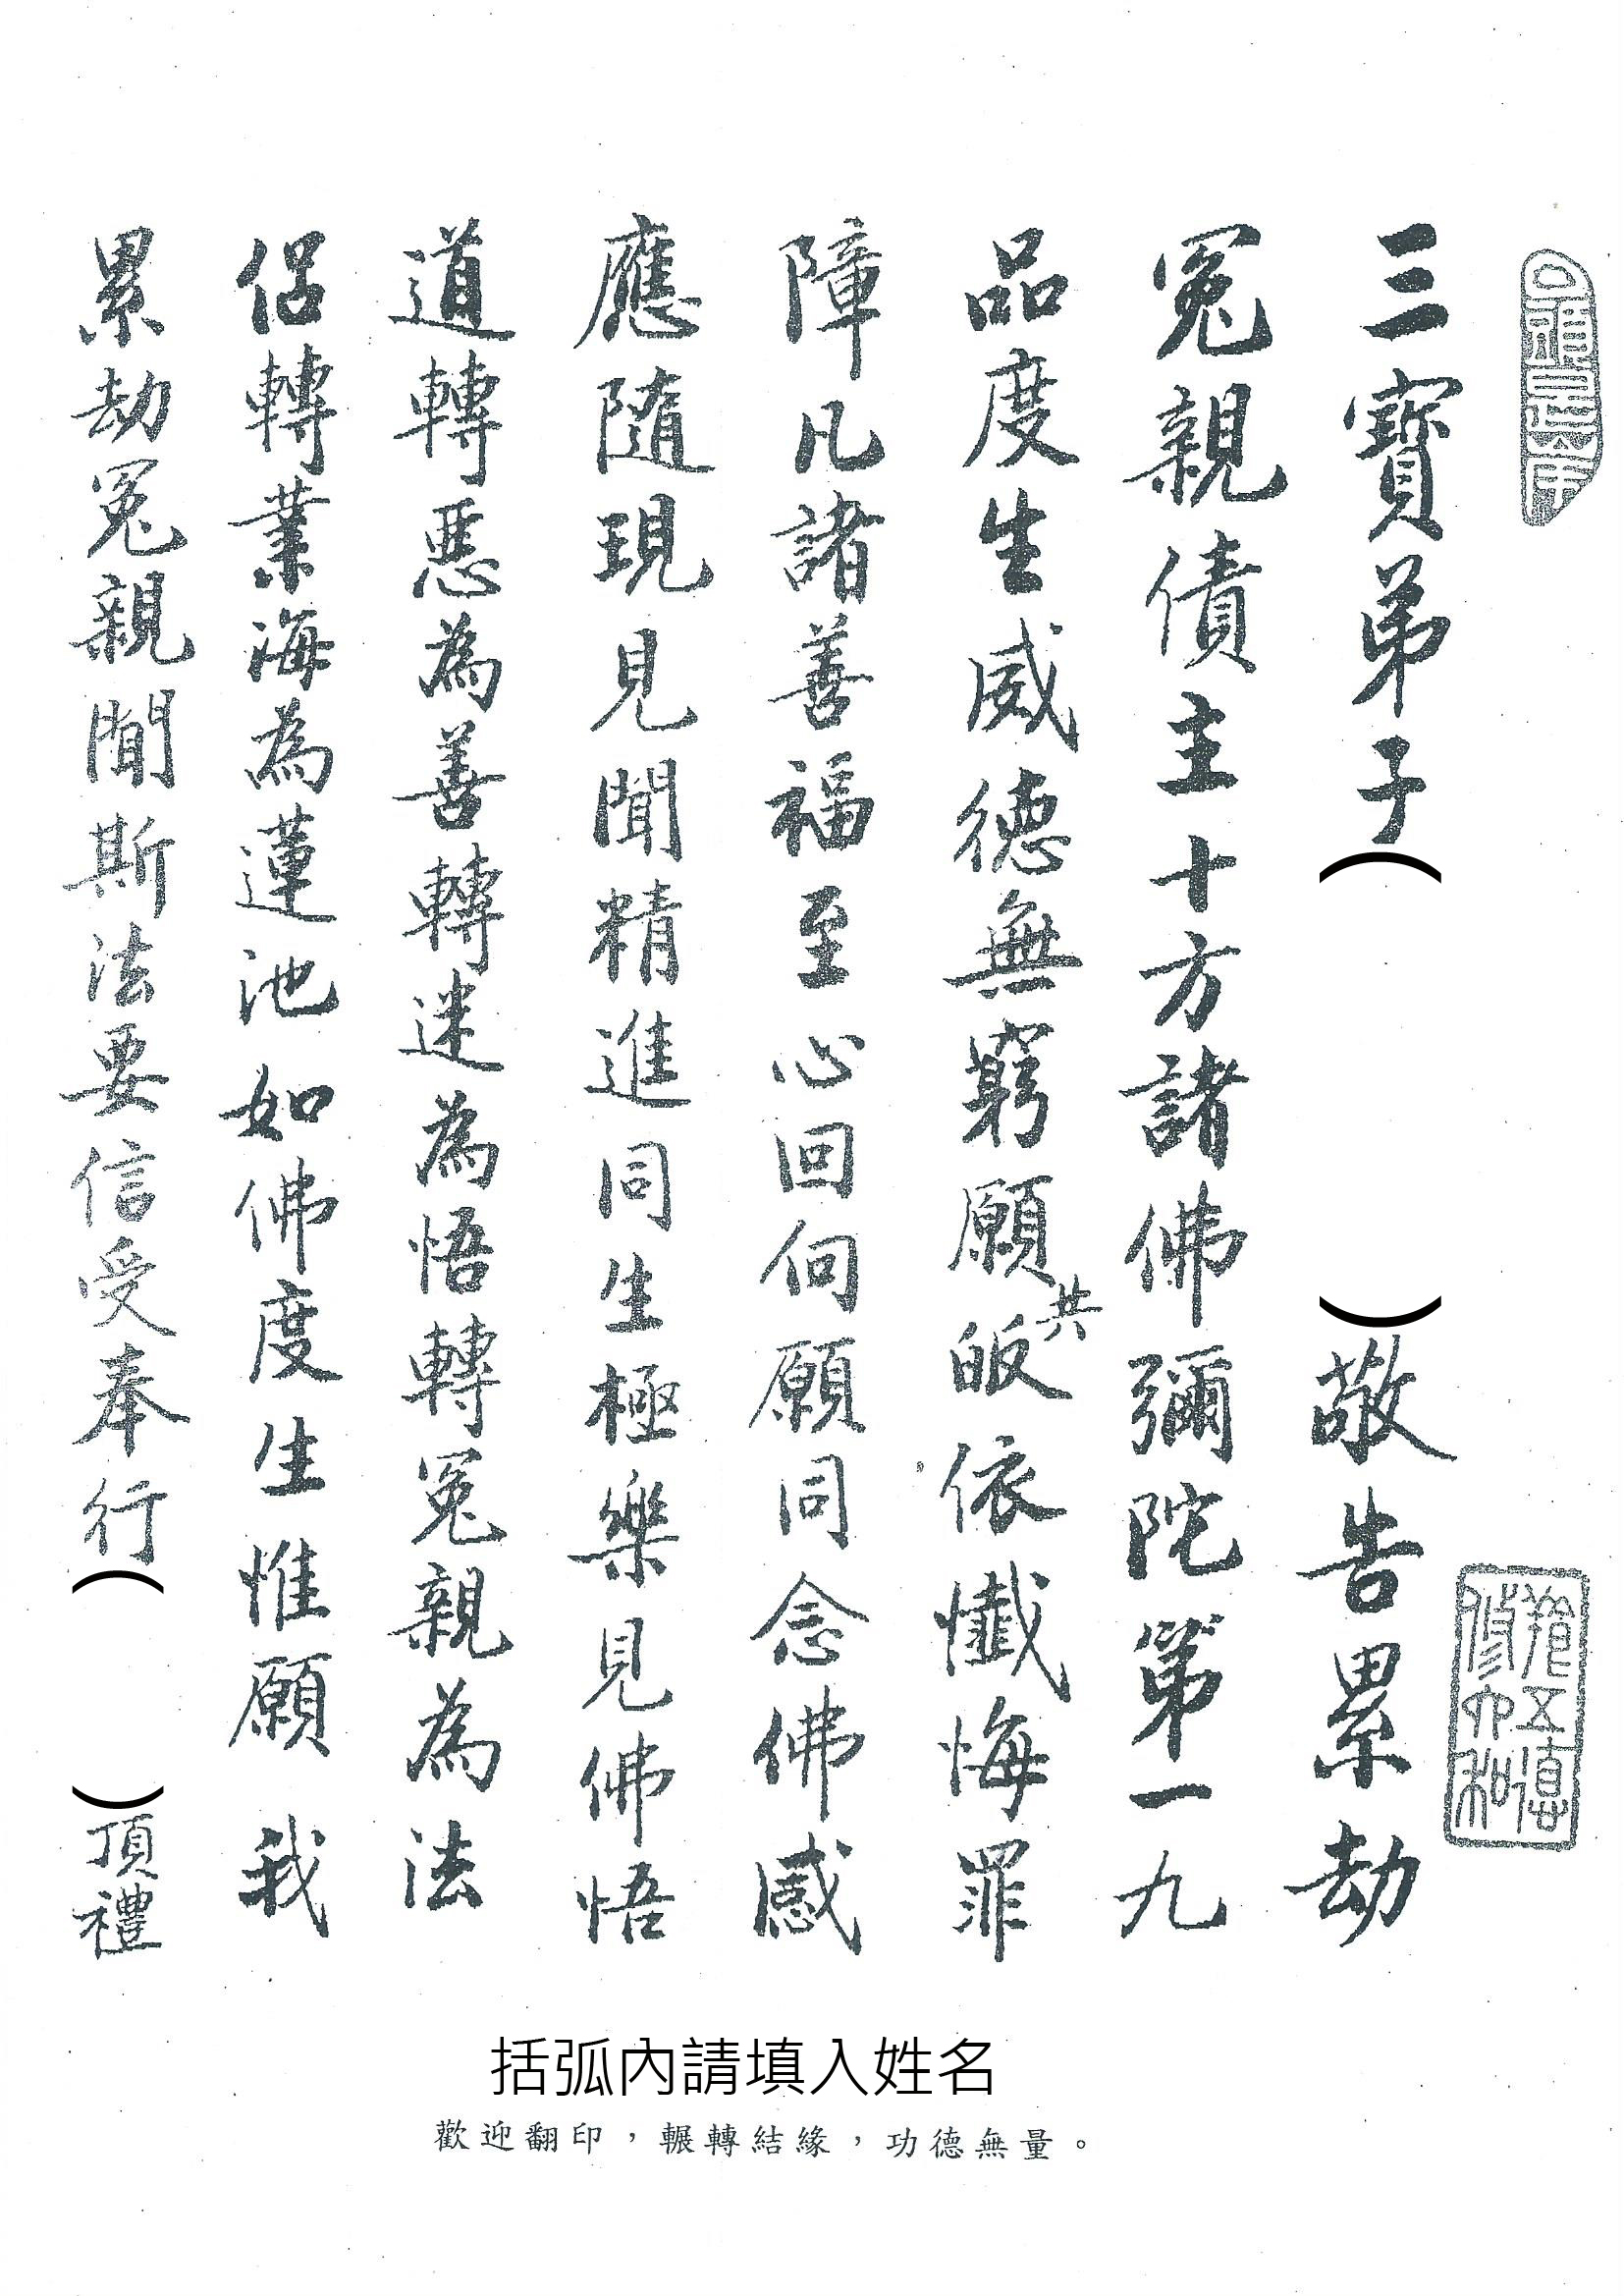 三寶弟子（　　　）敬告累劫
冤親債主十方諸佛彌陀第一九
品度生威德無窮願共皈依懺悔罪
障凡諸善福至心回向願同念佛感
應隨現見聞精進同生極樂見佛悟
道轉惡為善轉迷為悟轉冤親為法
侶轉業海為蓮池如佛度生惟願 我
累劫冤親聞斯法要信受奉行（　　　）頂禮
括弧內請填入姓名
歡迎翻印，輾轉結緣，功德無量。